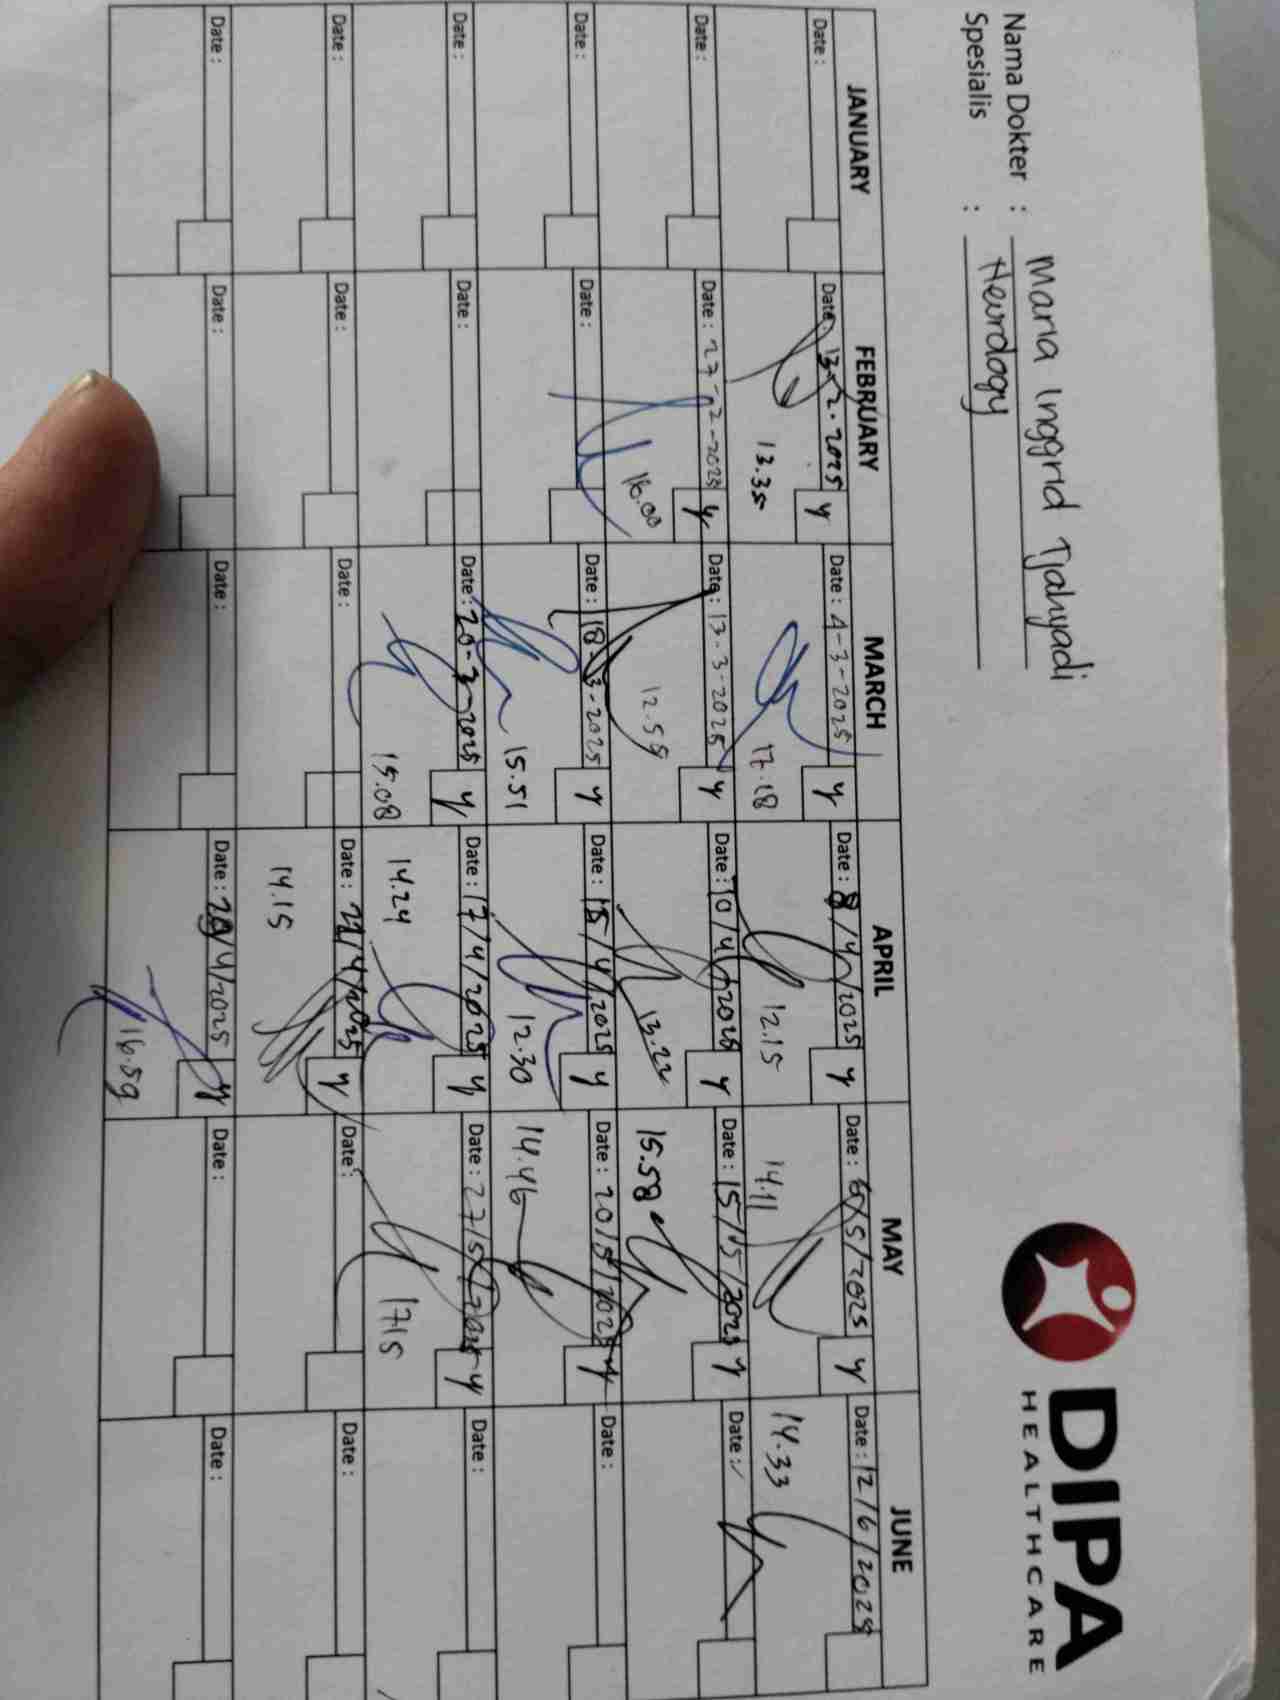 Nama Dokter : Maria Inggrid Tjahyadi
Spesialis : Neurology
DIPA
HEALTHCARE
JANUARY FEBRUARY MARCH APRIL MAY JUNE
Date : Date : 13-2-2025 y Date : 4-3-2025 y Date : 8/4/2025 y Date : 6/5/2025 y Date : 12/6/2025
13.35 17.18 12.15 14.11 14.33
Date : Date : 27-02-2025 y Date : 13-3-2025 y Date : 10/4/2025 y Date : 15/5/2025 y Date :
16.00 12.55 13.22 15.58
Date : Date : Date : 18-3-2025 y Date : 15/4/2025 y Date : 20/5/2025 y Date :
15.51 12.30 14.46
Date : Date : Date : 20-3-2025 y Date : 17/4/2025 y Date : 27/5/2025 y Date :
15.08 14.24 1715
Date : Date : Date : Date : 22/4/2025 y Date : Date :
14.15
Date : Date : Date : Date : /4/2025 y Date : Date :
16.59